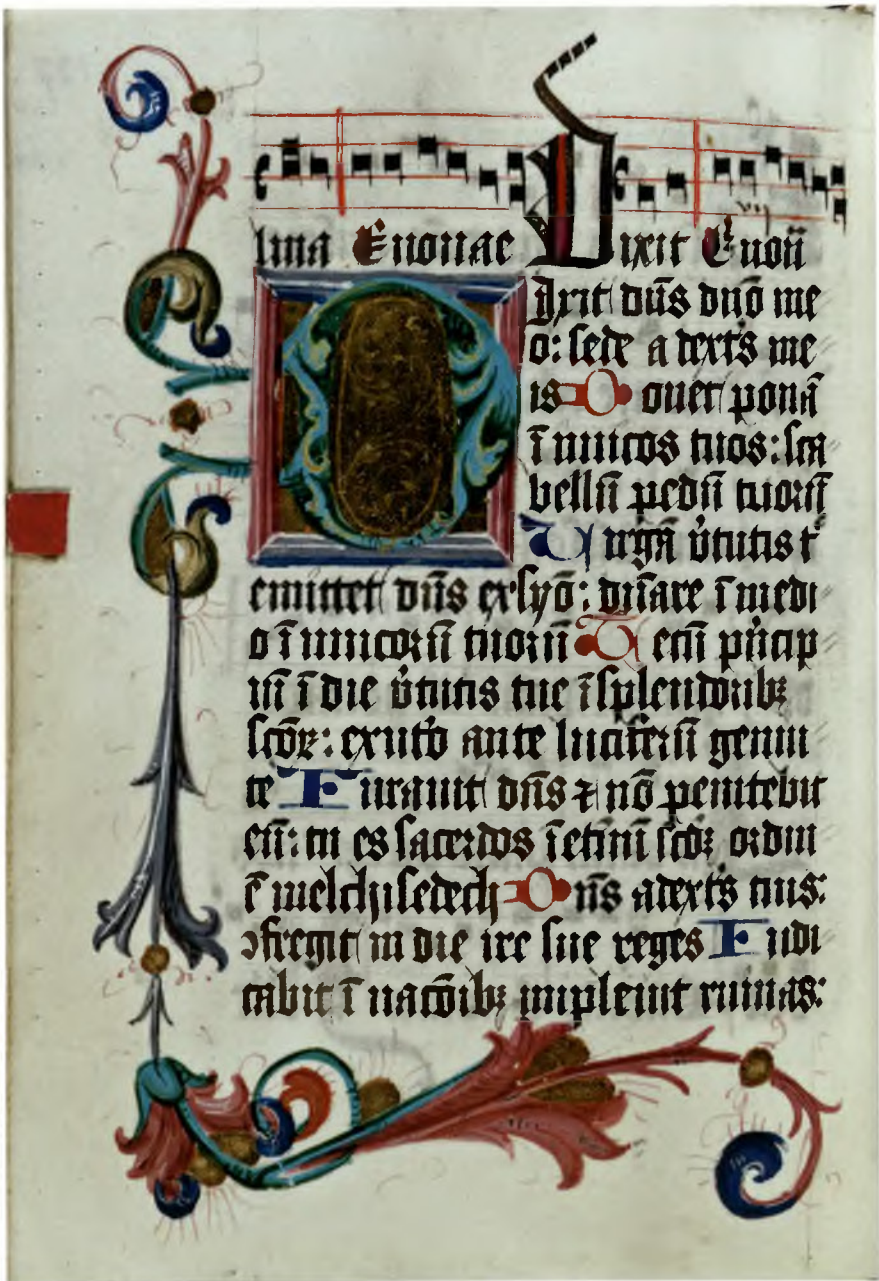 lina Euouae Dixit Euoū
Dixit dūs dūo me
o: sede a dext̄s me
is Donec ponā
īnimicos tuos: sca
bellū pedū tuorū
Virgā v̓tutis t̄
emittet dn̄s ex syō: dn̄are ī medi
o īnimicorū tuorū Tecū p̓ncip
iū ī die v̓tutis tue ī splendoribꝫ
scōꝝ: ex uto̓ ante luciferū genui
te Iurauit dn̄s ⁊ nō penitebit
eū: tu es sacerdos īetn̄ū scd̄ꝫ ordin
ē melchisedech Dn̄s a dext̄s tuis:
ↄfregit in die ire sue reges Iudi
cabit ī nacōibꝫ impleuit ruinas: